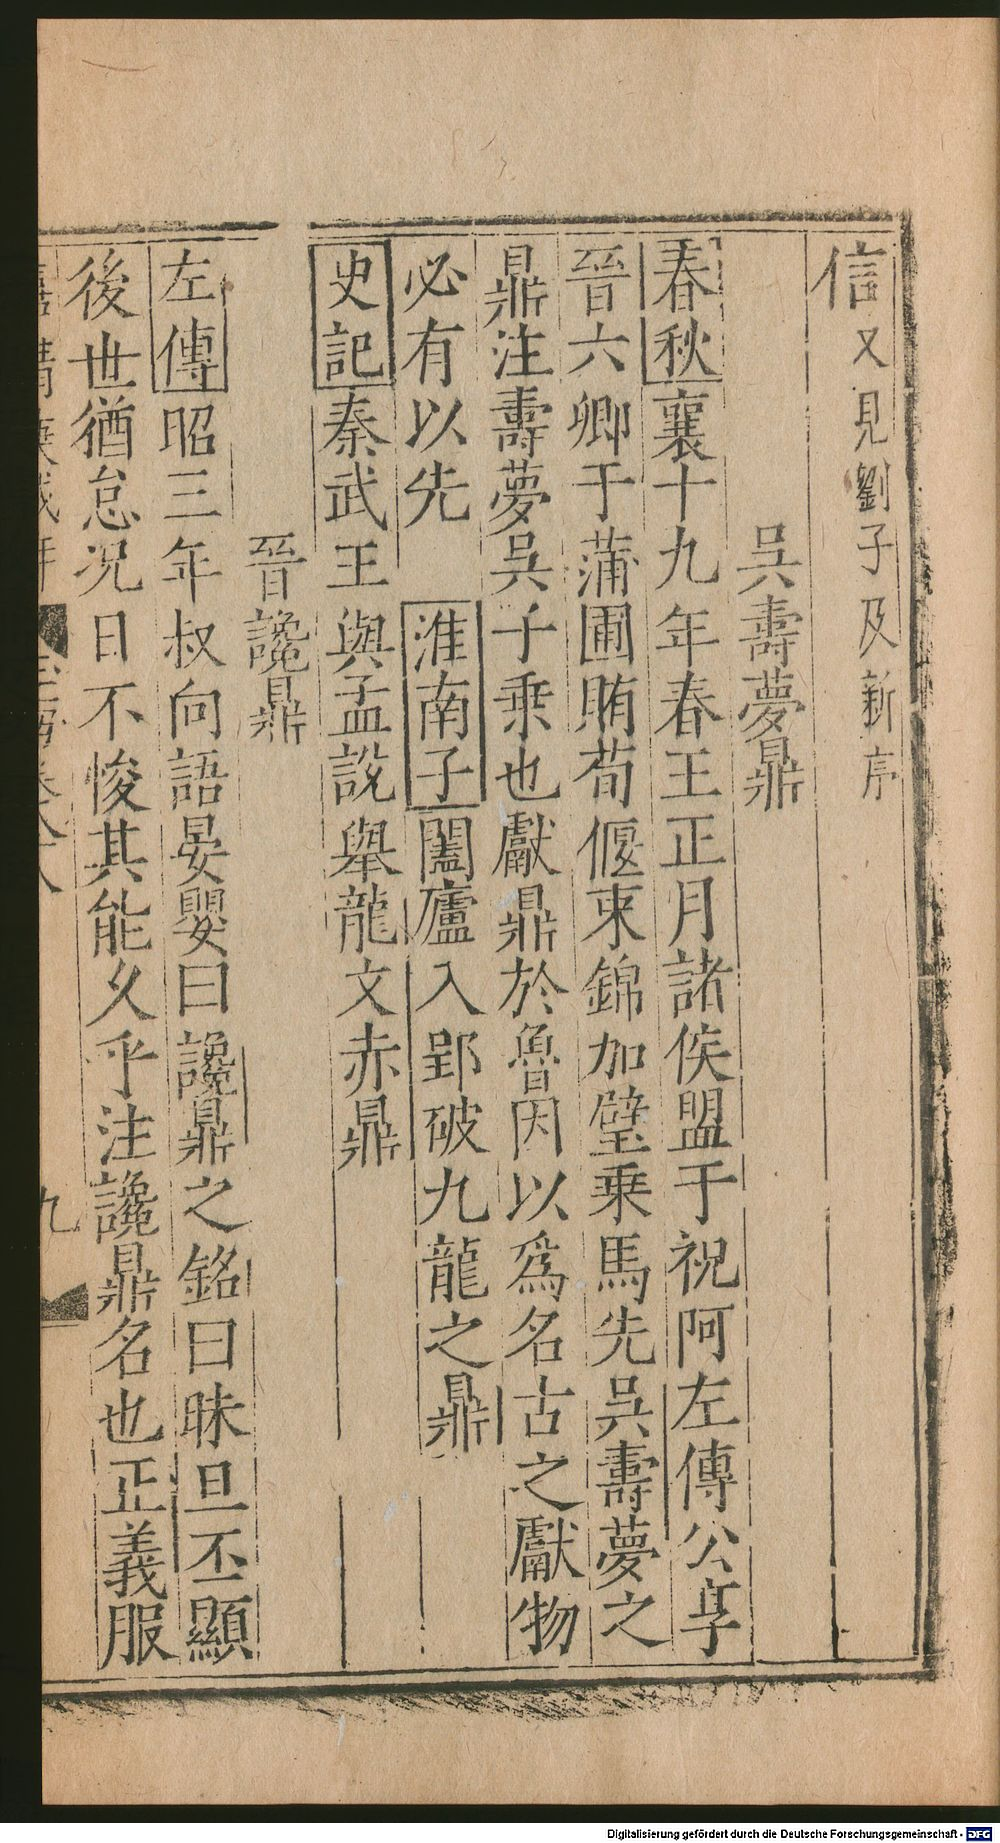 信又見劉子及新序
吳壽夢鼎
春秋襄十九年春王正月諸侯盟于祝阿左傳公享
晉六卿于蒲圃賄荀偃束錦加璧乗馬先吳壽夢之
鼎注壽夢吳子乗也獻鼎於魯因以爲名古之獻物
必有以先　淮南子闔廬入郢破九龍之鼎
史記秦武王與孟說舉龍文赤鼎
晉讒鼎
左傳昭三年叔向語晏嬰曰讒鼎之銘曰昧旦丕顯
後世猶怠况日不悛其能久乎注讒鼎名也正義服
九
Digitalisierung gefördert durch die Deutsche Forschungsgemeinschaft - DFG